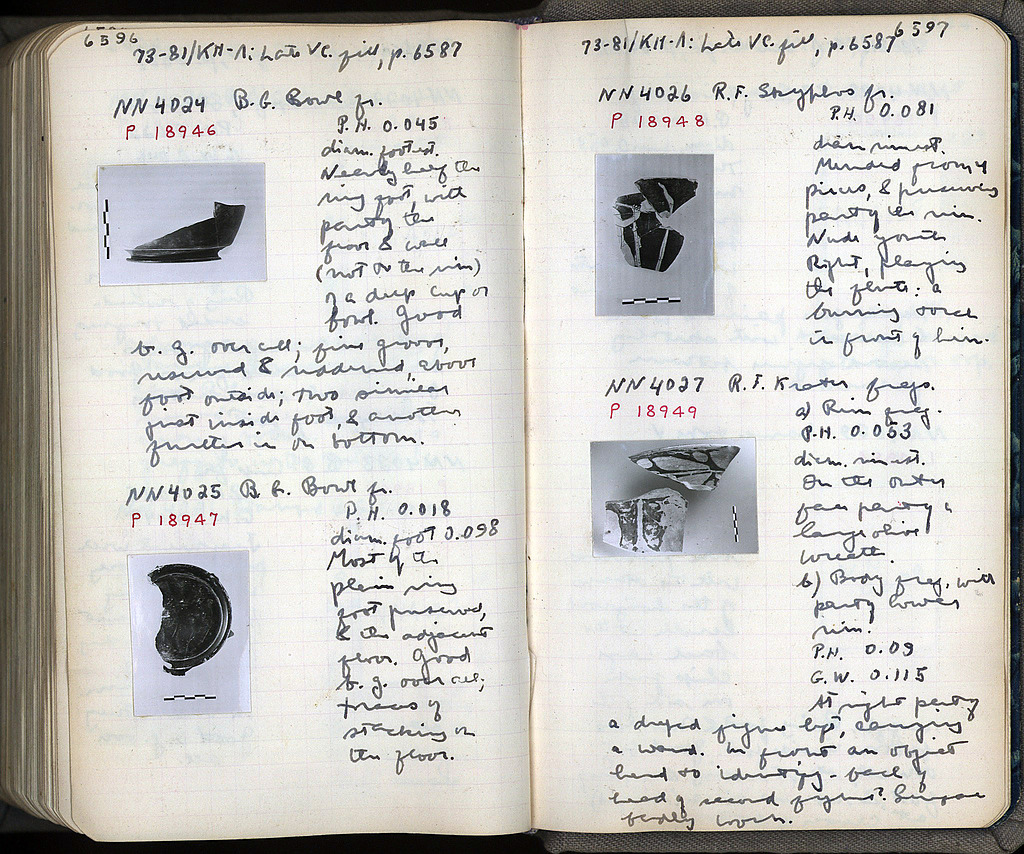 6596
73-81/KH-Λ: Late VC. fill, p. 6587
NN 4024 B.G. Bowl fr.
P 18946
P.H. 0.045
diam. foot est.
Nearly half the
ring foot, with
part of the
floor & wall
(not to the rim)
of a deep cup or
bowl. Good
b. g. over all; fine groove,
reserved & , above
foot outside; two similar
just inside foot, & another
further in on bottom.
NN 4025 B.G. Bowl fr.
P 18947
P.H. 0.018
diam. foot 0.098
Most of the
plain ring
foot preserved,
& the adjacent
floor. Good
b. g. over all;
traces of
stacking on
the floor.
6597
73-81/KH-Λ: Late VC. fill, p. 6587
NN 4026 R.F. Skyphos fr.
P 18948
P.H. 0.081
diam. rim est.
Mended from 4
pieces, & preserving
part of the rim.
Nude youth
Right, playing
the flute: a
burning torch
in front of him.
NN 4027 R.F. Krater frags.
P 18949
a) Rim frag.
P.H. 0.053
diam. rim est.
On the outer
face part of a
large olive
wreath.
b) Body frag. with
part of lower
rim.
P.H. 0.09
G.W. 0.115
At right part of
a draped figure left, carrying
a wand. In front an object
hard to identify - back of
head of second figure? Surface
badly worn.